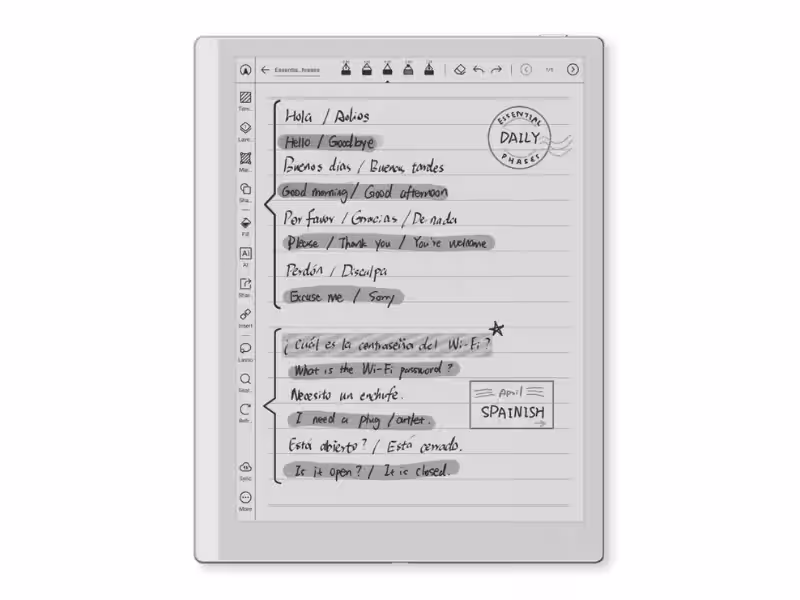 Essentia...hrases
1/1
Hola / Adios
Hello / Goodbye
Buenos dias / Buenas tardes
Good morning / Good afternoon
Por favor / Gracias / De nada
Please / Thank you / You're welcome
Perdón / Disculpa
Excuse me / Sorry
ESSENTIAL
DAILY
PHASES
¿Cuál es la contraseña del Wi-Fi?
What is the Wi-Fi password?
Necesito un enchufe.
I need a plug /outlet.
Está abierto? / Está cerrado.
Is it open? / It is closed.
April
SPAINISH
Fill
AI
AI
Shar...
Insert
Lasso
Sync
More